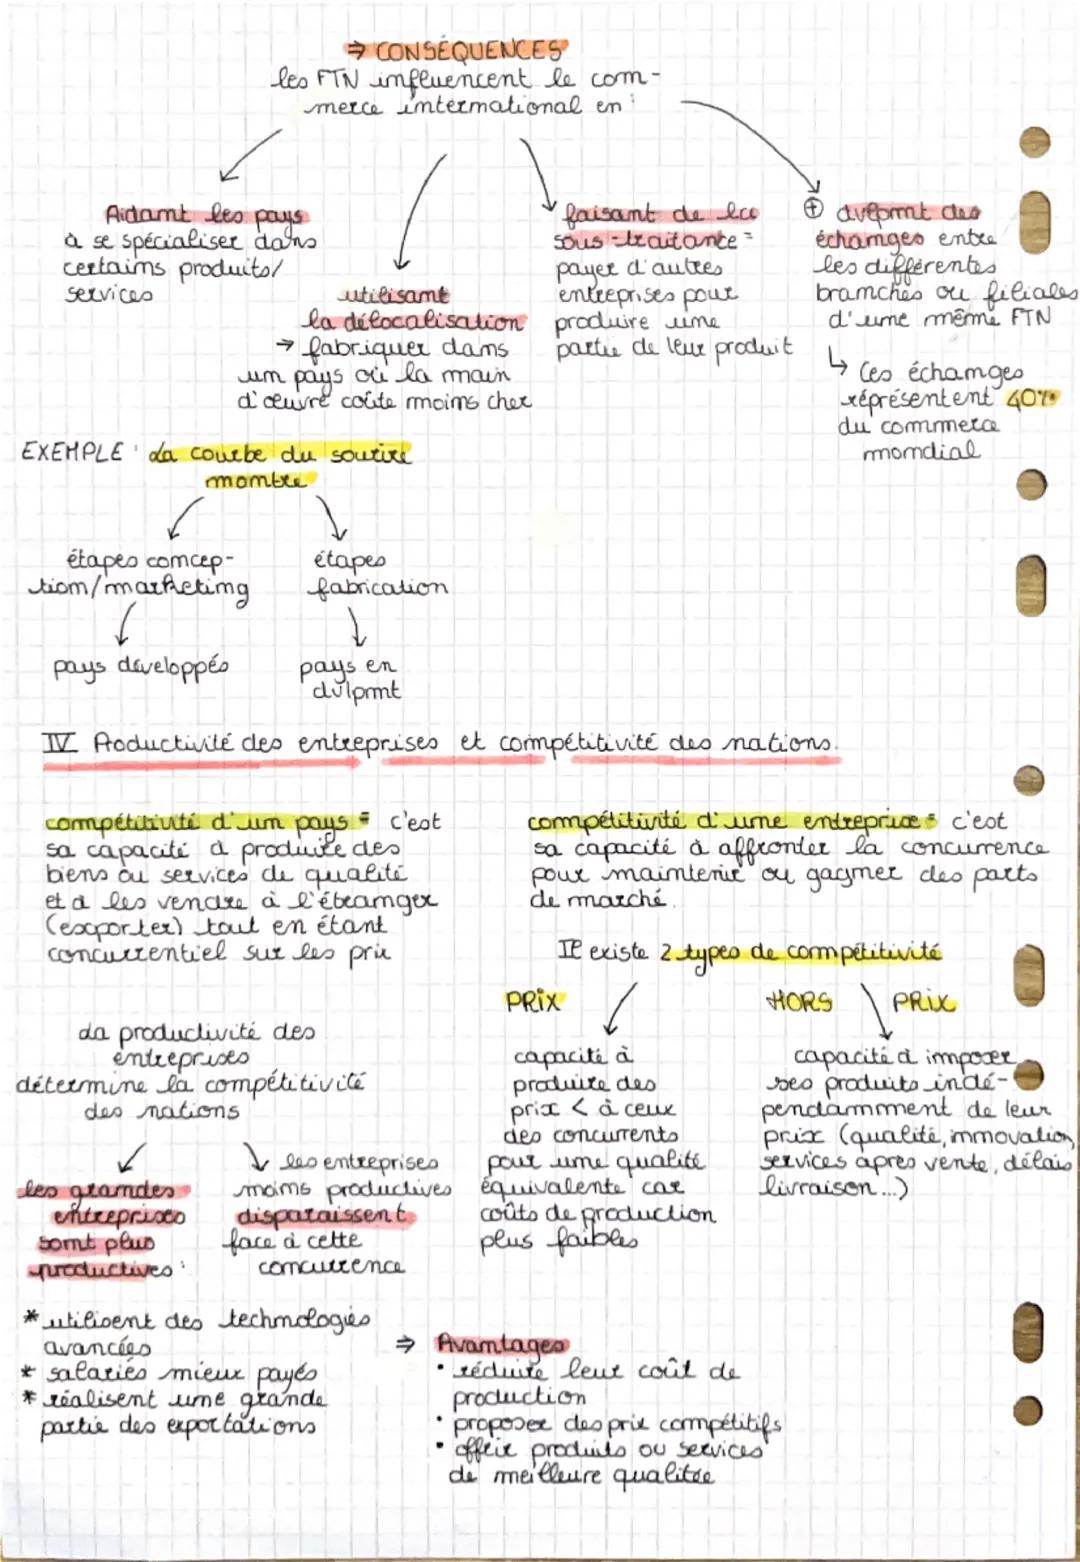 ⇒ CONSÉQUENCES
les FTN influencent le com-
merce international en :
Aidant les pays
à se spécialiser dans
certains produits/
services
utilisant
la délocalisation
→ fabriquer dans
un pays où la main
d'œuvre coûte moins cher
faisant de la
sous-traitance =
payer d'autres
entreprises pour
produire une
partie de leur produit
⊕ dvlpmnt des
échanges entre
les différentes
branches ou filiales
d'une même FTN
↳ Ces échanges
réprésentent 40%
du commerce
mondial
EXEMPLE : La courbe du sourire
montre
étapes concep-
tion/marketing
pays développés
étapes
fabrication
pays en
dvlpmt
IV Productivité des entreprises et compétitivité des nations.
compétitivité d'un pays = c'est
sa capacité à produire des
biens ou services de qualité
et à les vendre à l'étranger
(exporter) tout en étant
concurrentiel sur les prix
La productivité des
entreprises
détermine la compétitivité
des nations
les grandes
entreprises
sont plus
productives :
* utilisent des technologies
avancées
* salariés mieux payés
* réalisent une grande
partie des exportations
les entreprises
moins productives
disparaissent
face à cette
concurrence
compétitivité d'une entreprise = c'est
sa capacité à affronter la concurrence
pour maintenir ou gagner des parts
de marché.
Il existe 2 types de compétitivité
PRIX
capacité à
produire des
prix < à ceux
des concurrents
pour une qualité
équivalente car
coûts de production
plus faibles
HORS PRIX
capacité à imposer
ses produits indé-
pendamment de leur
prix (qualité, innovation,
services après vente, délais
livraison...)
⇒ Avantages
• réduire leur coût de
production
• proposer des prix compétitifs
• offrir produits ou services
de meilleure qualitée